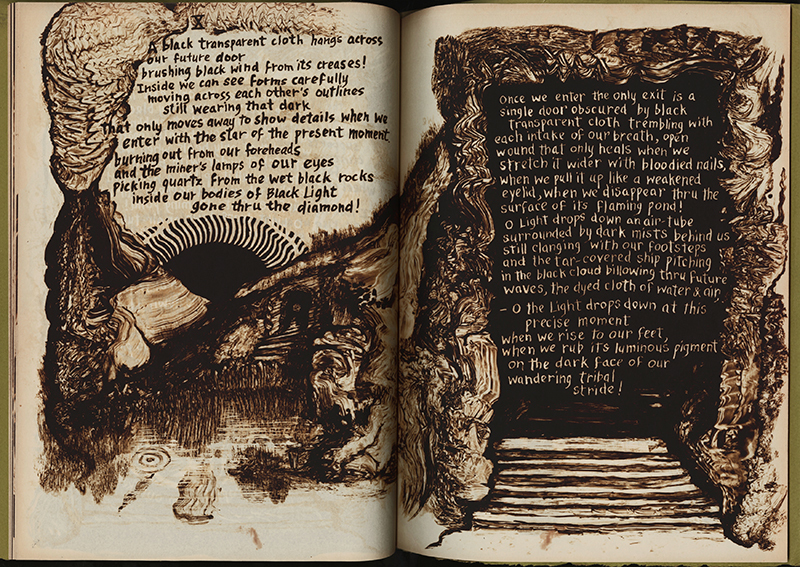 X
A black transparent cloth hangs across
our future door
brushing black wind from its creases!
Inside we can see forms carefully
moving across each other's outlines
still wearing that dark
that only moves away to show details when we
enter with the star of the present moment
burning out from our foreheads
and the miner's lamps of our eyes
picking quartz from the wet black rocks
inside our bodies of Black Light
gone thru the diamond!
Once we enter the only exit is a
single door obscured by black
transparent cloth trembling with
each intake of our breath, open
wound that only heals when we
stretch it wider with bloodied nails,
when we pull it up like a weakened
eyelid, when we disappear thru the
surface of its flaming pond!
O Light drops down an air-tube
surrounded by dark mists behind us
still clanging with our footsteps
and the tar-covered ship pitching
in the black cloud billowing thru future
waves, the dyed cloth of water & air,
– O the Light drops down at this
precise moment
when we rise to our feet,
when we rub its luminous pigment
on the dark face of our
wandering tribal
stride!